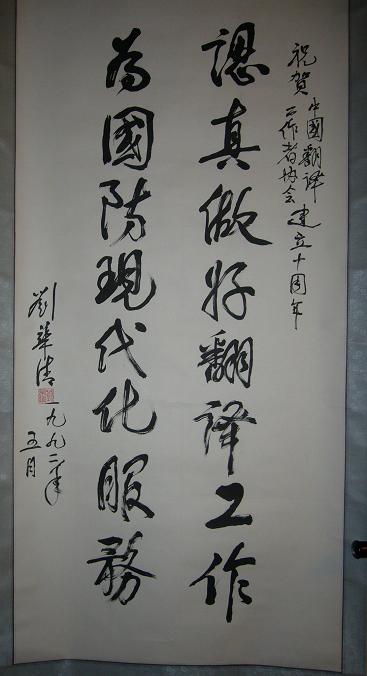 祝贺中國翻译
工作者协会建立十周年
認真做好翻译工作
為國防現代化服務
劉華清
一九九二年
五月